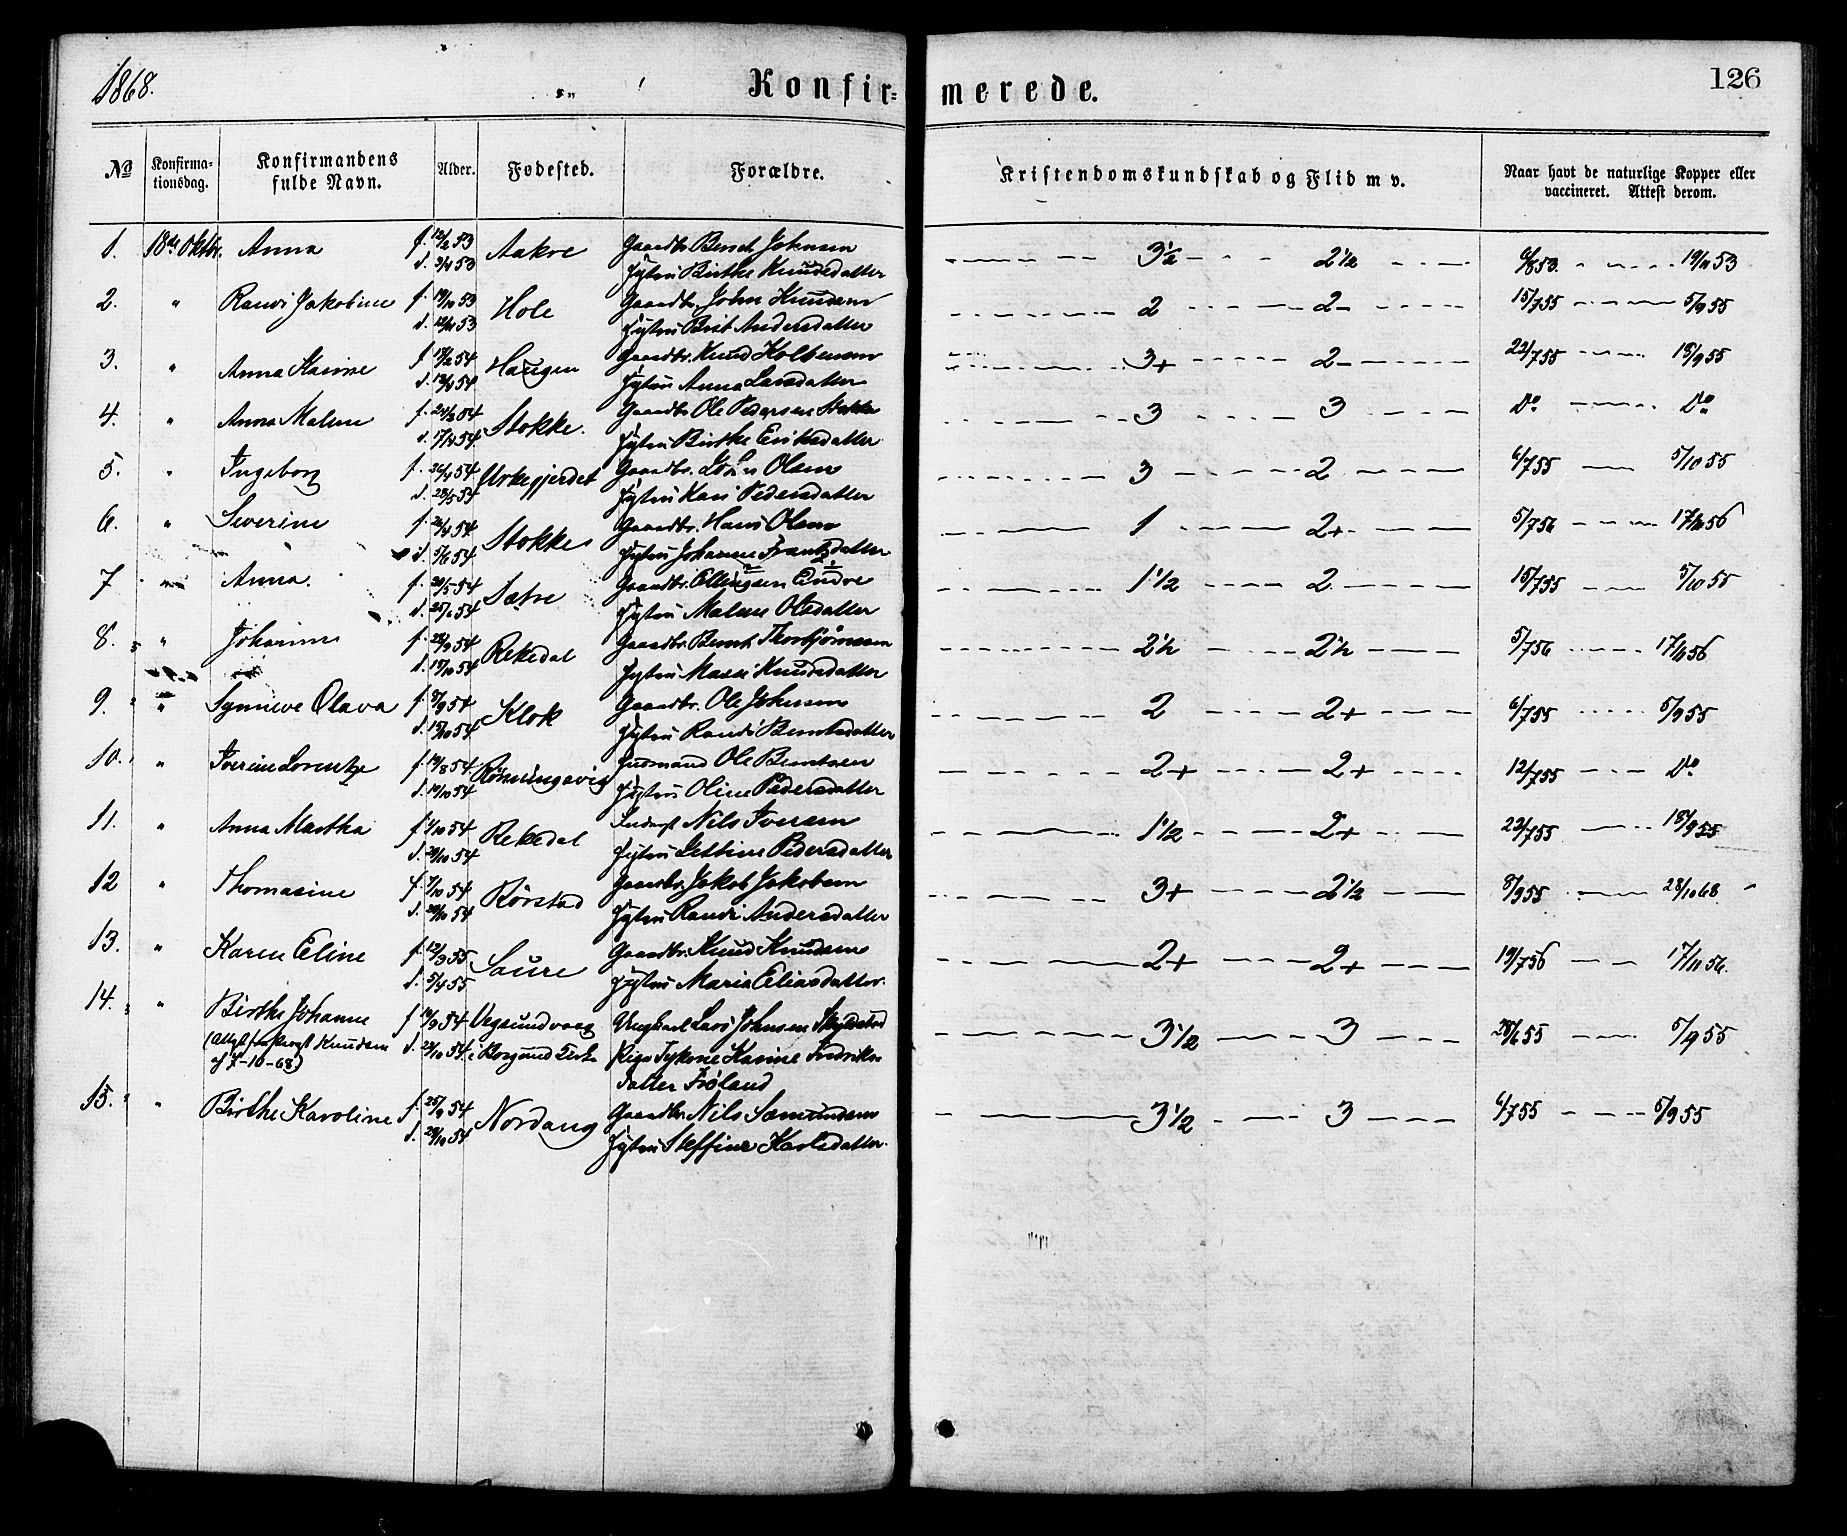 1868.
Konfir=
merede.
126
No
Konfirma-
tionsdag.
Konfirmandens
fulde Navn.
Alder.
Fødested.
Forældre.
Kristendomskundskab og Flid m v.
Naar havt de naturlige Kopper eller
vaccineret. Attest derom.
1. 18de Oktbr. Anna f. 12/2 53 Aakre Gaardbr. Bernt Johnsen 3½ 2½ 6/8 53. 19/11 53
d. 3/4 53 Jytru Birthe Knudsdatter
2. " Randi Jakobine f. 19/10 53 Hole Gaardbr. John Knudsen 2 2- 15/7 55 5/9 55
d. 12/11 53 Jytru Brit Andersdatter
3. " Anna Karine f. 17/2 54 Haugen Gaardbr. Knud Kolbensen 3+ 2- 22/7 55 18/9 55
d. 13/4 54 Jytru Anna Larsdatter
4. " Anna Malene f. 24/3 54 Stokke. Gaardbr. Ole Pedersen Stokke 3 3 Do Do
d. 17/4 54 Jytru Birthe Eriksdatter
5. " Ingeborg f. 26/4 54 Gaardbr. Olsen 3 2 6/7 55 5/10 55
d. 28/5 54 Jytru Kari Pedersdatter
6. " Severine f. 26/4 54 Stokke Gaardbr. Hans Olsen 1 2+ 5/7 56 17/11 56
d. 5/6 54 Jytru Johanne Frantzdatter
7 " Anna. f. 20/5 54 Sætre Gaardbr. Ellingsen Endre 1½ 2 15/7 55 5/10 55
d. 25/6 54 Jytru Malene Olsdatter
8. " Johanne f. 28/9 54 Rekedal Gaardbr. Bernt Thorbjørnsen 2½ 2½ 5/7 56 17/11 56
d. 15/10 54 Jytru Massi Knudsdatter
9. " Synneve Olava f. 8/9 54 Klok Gaardbr. Ole Johnsen 2 2+ 6/7 55 5/9 55
d. 15/10 54 Jytru Randi Berntsdatter
10. " Iverine Lorentze f. 19/8 54 Rønningsvig Husmand Ole Berntsen 2+ 2+ 12/7 55 Do
d. 19/10 54 Jytru Oline Pedersdatter
11. " Anna Martha f. 4/10 54 Rekedal Inderst Nils Iversen 1½ 2+ 22/7 55 18/9 55
d. 29/10 54 Jytru Pedersdatter
12 " Thomasine f. 7/10 54 Rørstad Gaardbr. Jakob Jakobsen 3+ 2½ 8/9 55 28/10 68
d. 29/10 54 Jytru Randi Andersdatter
13. " Karen Eline f. 12/3 55 Saure Gaardbr. Knud Knudsen 2+ 2+ 19/7 56 17/11 56.
d. 5/4 55 Jytru Maria Eliasdatter.
14. " Birthe Johanne f. 16/9 54 Vegsundvaag Ungkarl Lars Johnsen Skyldstad 3½ 3 28/6 55 5/9 55
(Attest fra Knudsen d. 22/10 54 i Borgund Pige Karine Fredriks-
af 7-10-68) datter Frøland
15. " Birthe Karoline f. 25/9 54 Nordang Gaardbr. Nils Sæmundsen 3½ 3 6/7 55 5/9 55
d. 29/10 54 Jytru Steffine Karlsdatter.